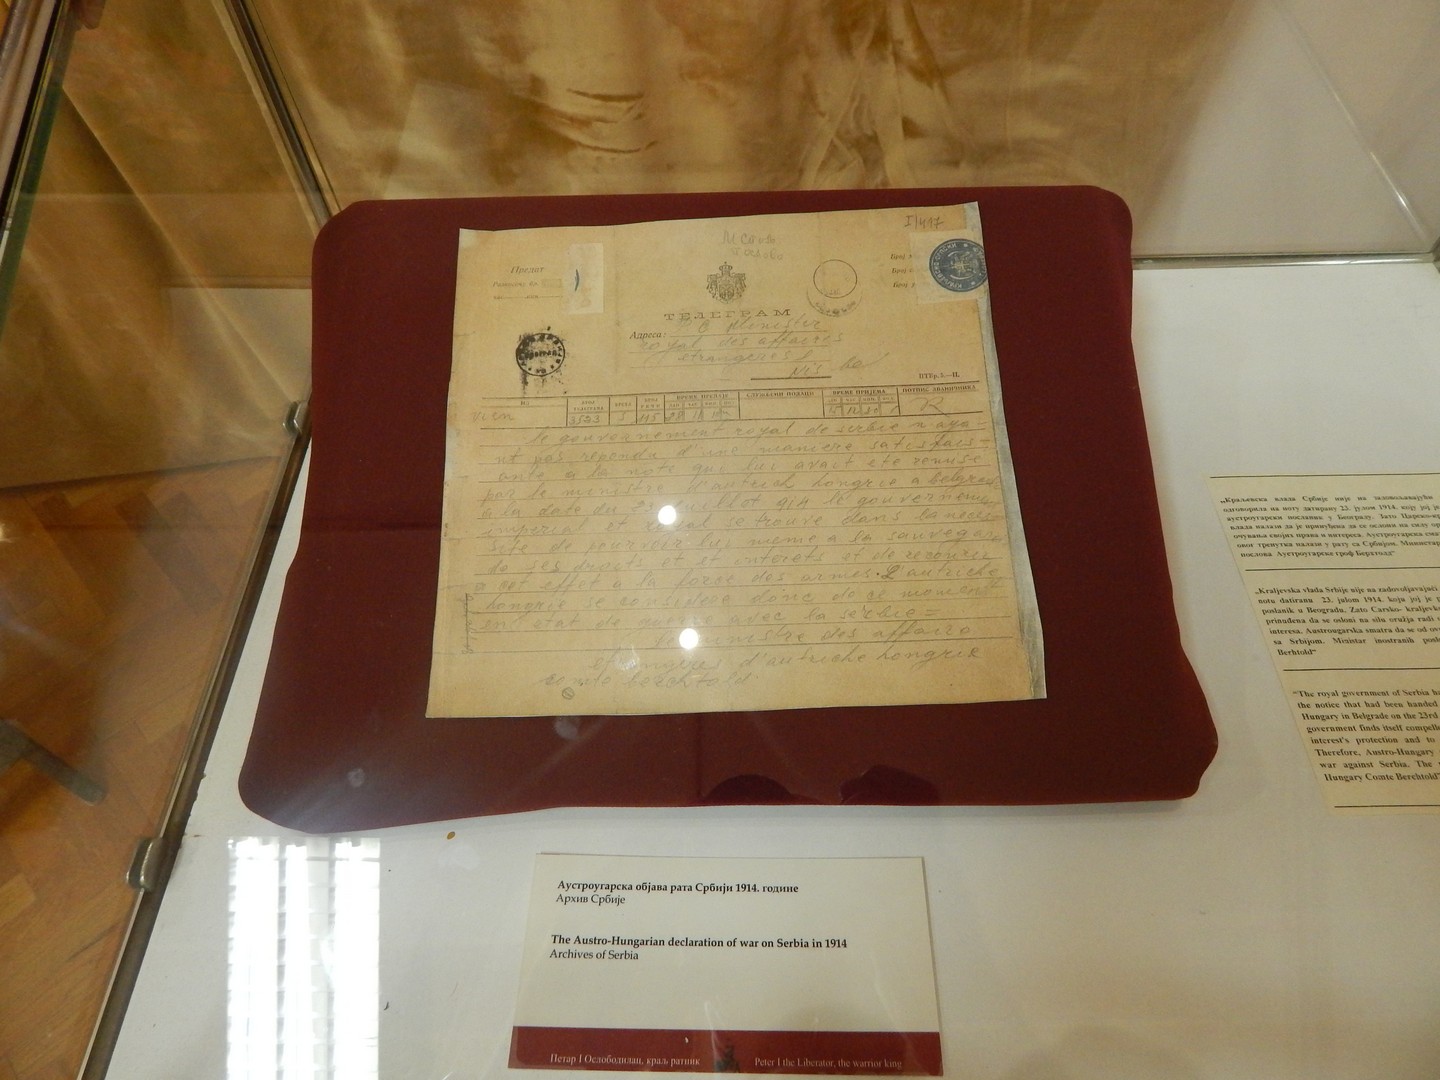 I/417
Предат
ТЕЛЕГРАМ
Адреса:
Minister
royal des affaires
etrangeres
Nis
ПТЕр. 5.—II.
БРОЈ ТЕЛЕГРАМА
БРОЈ РЕЧИ
ВРЕМЕ ПРЕДАЈЕ
СЛУЖБЕНИ ПОДАЦИ
ВРЕМЕ ПРИЈЕМА
ПОТПИС ЗВАНИЧНИКА
Vien
3523
5
le gouvernement royal de serbie n aya-
nt pas repondu d'une maniere satisfais-
ante a la note qui lui avait ete remise
par le ministre d'autrich hongrie a belgrad
a la date du le gouverneme
imper trouve dans la neces
site de meme a la sauvegar
de ses droits et interets et de recourir
a cet effet a la force des armes. L'autriche
hongrie se considere donc de ce moment
en etat de avec la serbie =
des affaire
etrangeres d'autriche hongrie
comte berchtold
„Краљевска влада Србије није на задовољавајући
одговорила на ноту датирану 23. јулом 1914. коју јој је
аустроугарски посланик у Београду. Зато Царско-кр
влада налази да је принуђена да се ослони на силу ор
очувања својих права и интереса. Аустроугарска сма
овог тренутка налази у рату са Србијом. Министар
послова Аустроугарске гроф Берхтолд“
„Kraljevska vlada Srbije nije na zadovoljavajući
notu datiranu 23. julom 1914. koju joj je p
poslanik u Beogradu. Zato Carsko- kraljevska
prinuđena da se osloni na silu oružja radi
interesa. Austrougarska smatra da se od ov
sa Srbijom. Ministar inostranih posl
Berhtold“
“The royal government of Serbia ha
the notice that had been handed
Hungary in Belgrade on the 23rd
government finds itself compelle
interest's protection and to
Therefore, Austro-Hungary
war against Serbia. The
Hungary Comte Berchtold”
Аустроугарска објава рата Србији 1914. године
Архив Србије
The Austro-Hungarian declaration of war on Serbia in 1914
Archives of Serbia
Петар I Ослободилац, краљ ратник Peter I the Liberator, the warrior king